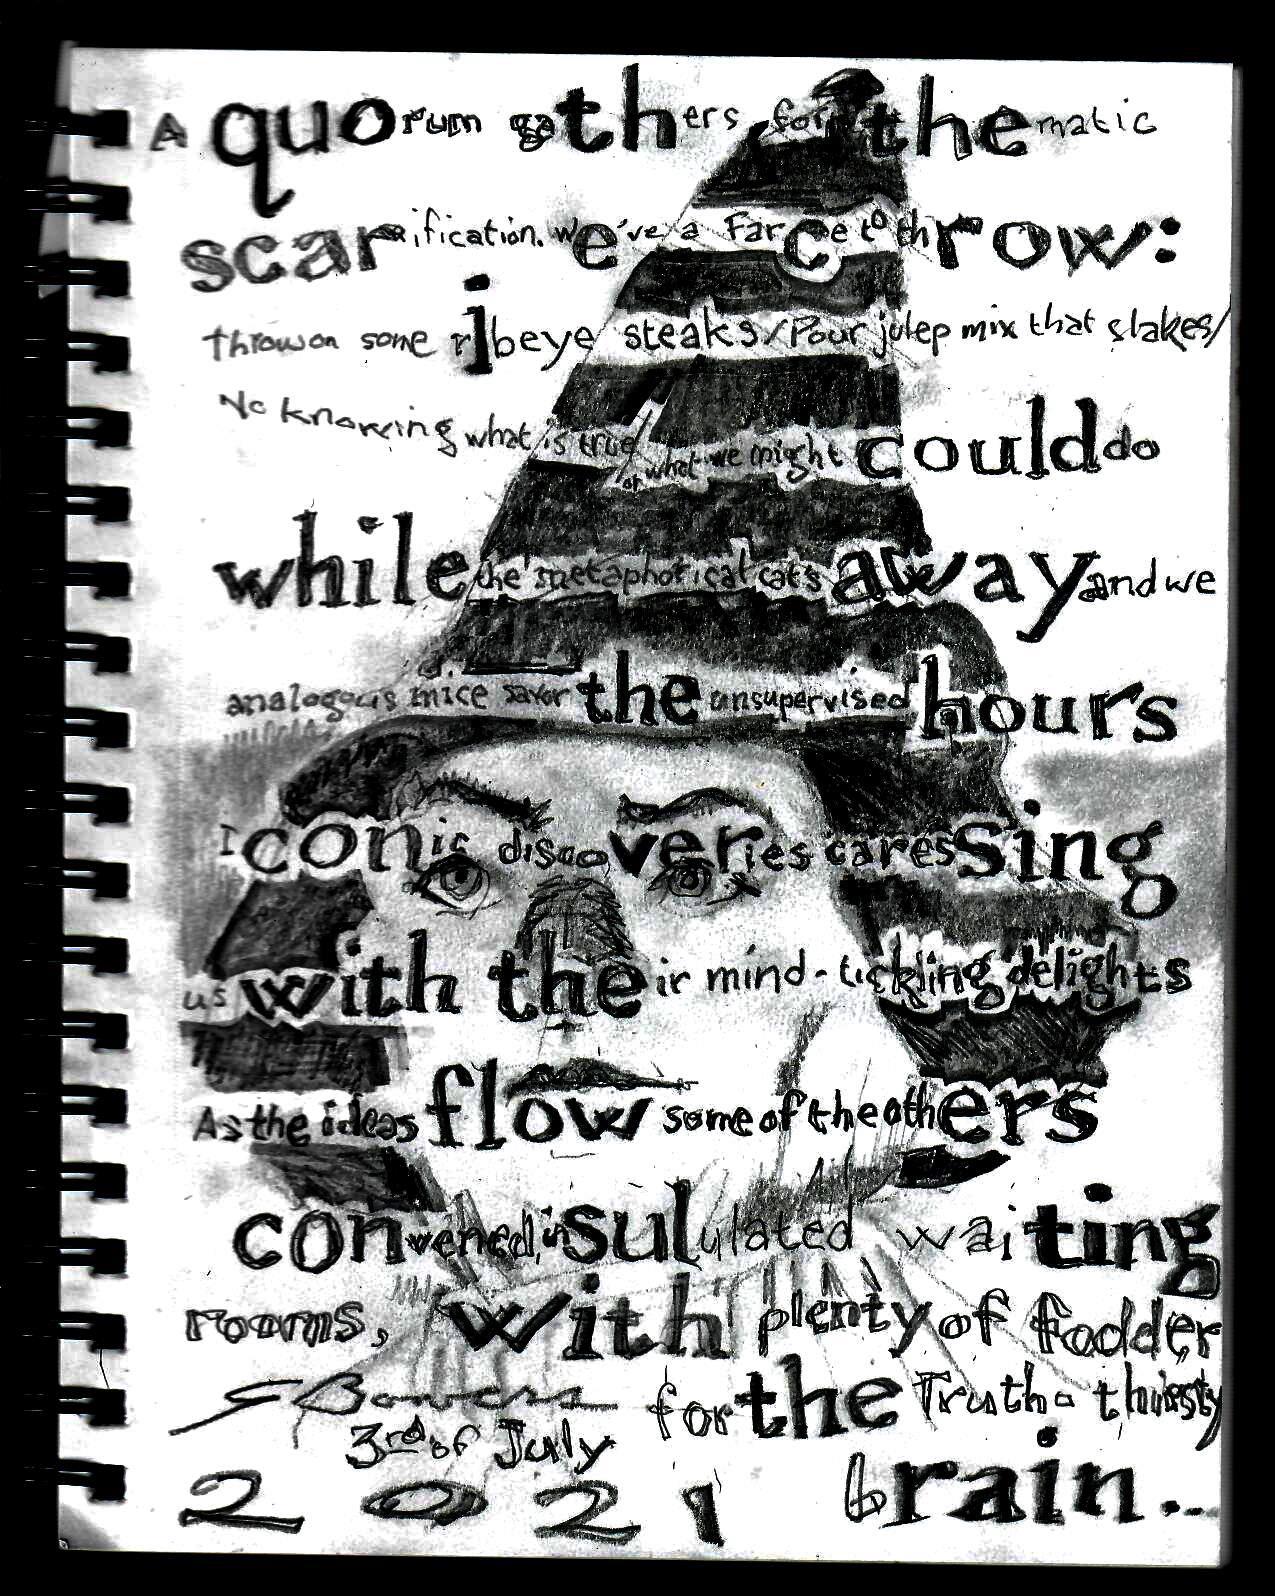 A quorum gathers for thematic
scarification. we've a Farce to throw:
throw on some ribeye steaks/Pour julep mix that slakes/
No knowing what is true or what we might could do
while the metaphorical cat's away and we
analogous mice savor the unsupervised hours
Iconic discoveries caressing
us with their mind-tickling delights
As the ideas flow some of the others
convened, in sululated waiting
rooms, with plenty of fodder
for the Truth-thirsty
brain...
S Bowers
3rd of July
2021